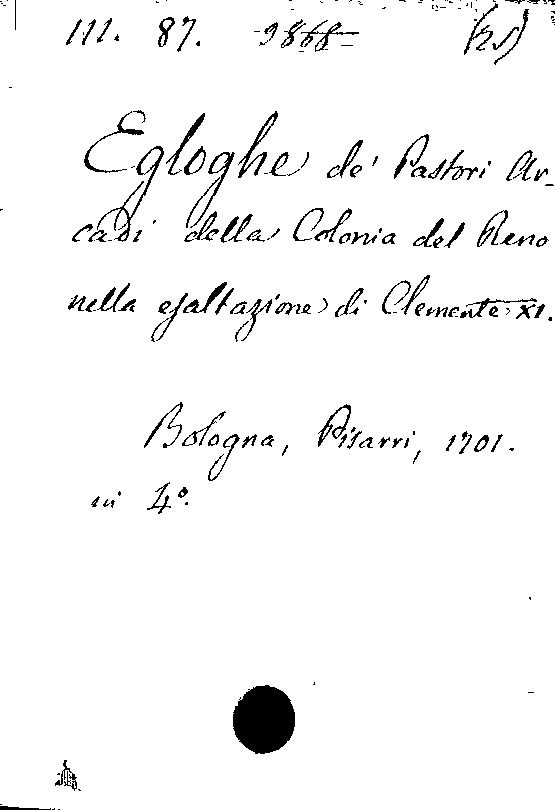 111. 87. 9868 (25)
Egloghe de' Pastori Ar-
cadi della Colonia del Reno
nella esaltazione di Clemente XI.
Bologna, Pisarri, 1701.
in 4º.